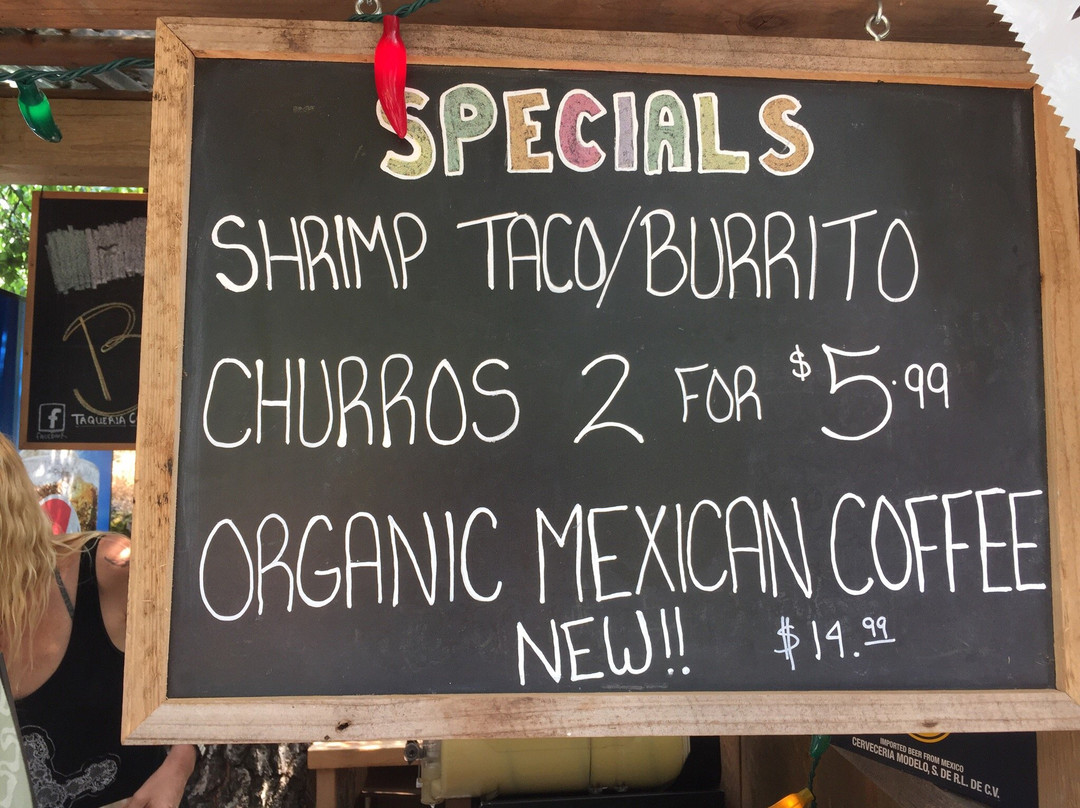 SPECIALS
SHRIMP TACO/BURRITO
CHURROS 2 FOR $5.99
ORGANIC MEXICAN COFFEE
NEW!! $14.99
B
f TAQUERIA
facebook
IMPORTED BEER FROM MEXICO
CERVECERIA MODELO, S. DE R.L. DE C.V.